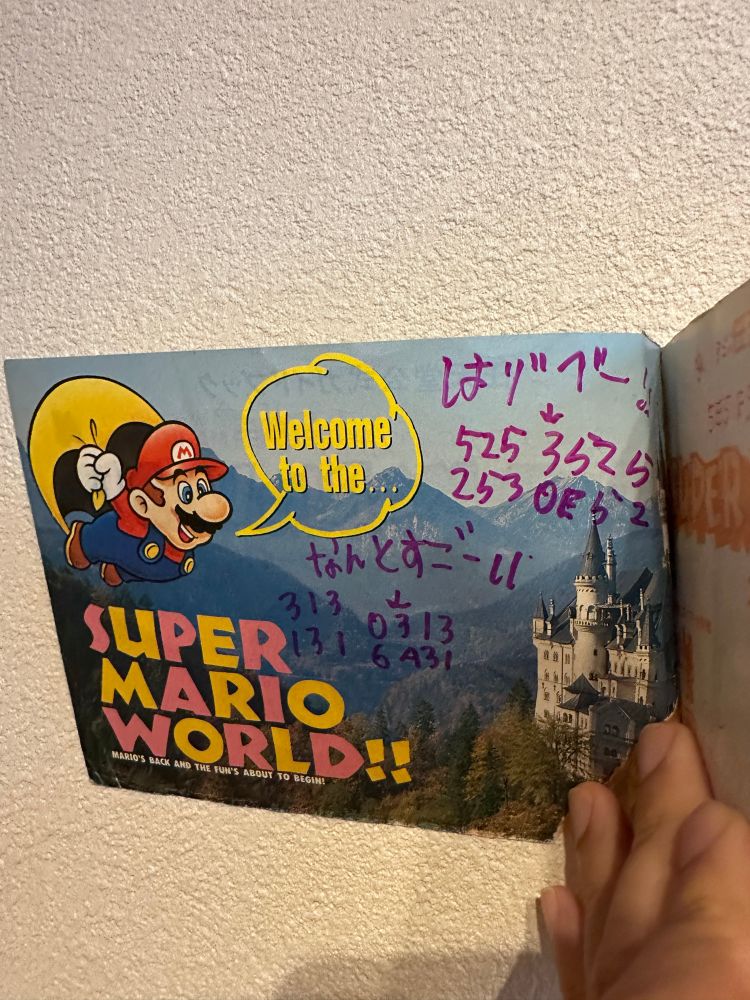 Welcome
to the...
525 3525
253 0E52
なんとすごー!!
313 0313
131 6A31
SUPER
MARIO
WORLD!!
MARIO'S BACK AND THE FUN'S ABOUT TO BEGIN!